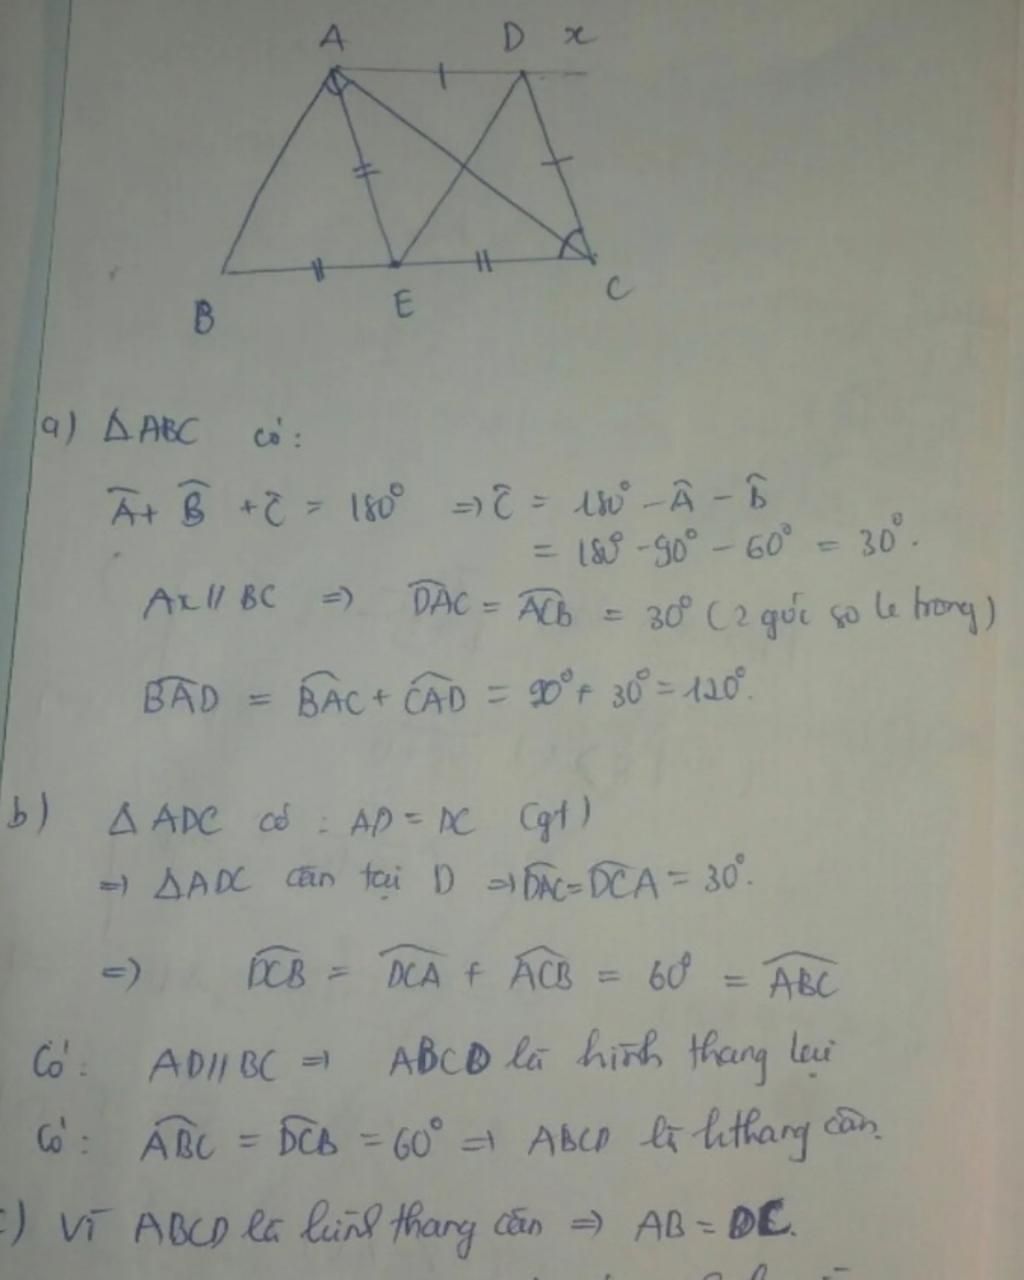 A D x
B E C
a) ΔABC có:
Â + B̂ + Ĉ = 180° => Ĉ = 180° - Â - B̂
= 180° - 90° - 60° = 30°.
Ax // BC => DAC = ACB = 30° (2 góc so le trong)
BAD = BAC + CAD = 90° + 30° = 120°.
b) Δ ADC có : AD = DC (gt)
=> ΔADC cân tại D => DAC = DCA = 30°.
=> DCB = DCA + ACB = 60° = ABC
Có: AD // BC => ABCD là hình thang lại
Có: ABC = DCB = 60° => ABCD là hthang cân.
c) Vì ABCD là hình thang cân => AB = DC.